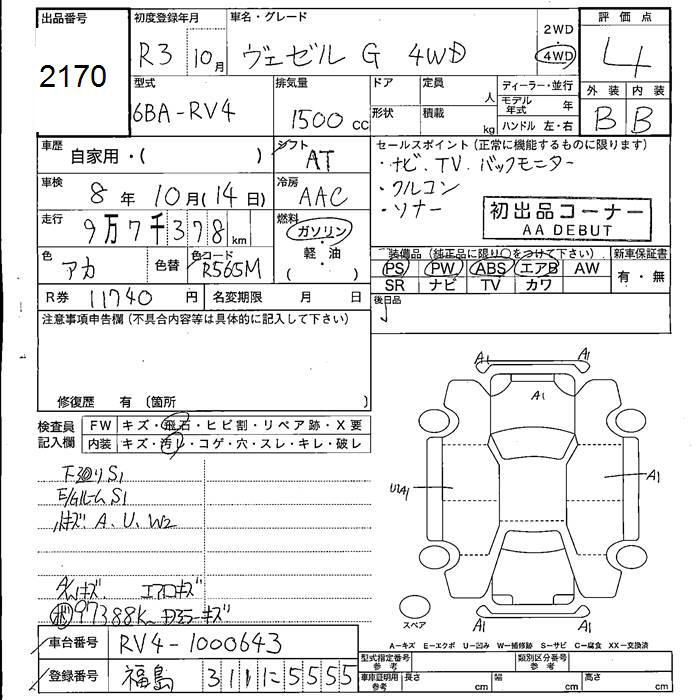 出品番号
2170
初度登録年月
R3 10月
車名・グレード
ヴェゼル G 4WD
2WD
・
4WD
評価点
4
型式
6BA-RV4
排気量
1500 cc
ドア
形状
定員
人
積載
kg
ディーラー・並行
モデル年式 年
ハンドル 左・右
外装 内装
B B
車歴
自家用・( )
シフト
AT
車検
8年 10月(14日)
冷房
AAC
走行
9万7千378km
燃料
ガソリン
・
軽・油
( )
色
アカ
色替
色コード
R565M
R券 11740円
名変期限 月 日
セールスポイント(正常に機能するものに限ります)
・ナビ、TV、バックモニター
・クルコン
・ソナー
初出品コーナー
AA DEBUT
装備品(純正品に限り○をつけて下さい)
PS PW ABS エアB AW
SR ナビ TV カワ
新車保証書
有・無
後日品
注意事項申告欄(不具合内容等は具体的に記入して下さい)
修復歴 有 (箇所 )
検査員
記入欄
FW キズ・飛石・ヒビ割・リペア跡・X要
内装 キズ・汚レ・コゲ・穴・スレ・キレ・破レ
下廻りS1
E/GルームS1
小キズ、A、U、W2
エアロキズ
97388K
ミラーキズ
A1 A1
A1
U1A1
A1
A1 A1
スペア
A-キズ E-エクボ U-凹み W-補修跡 S-サビ C-腐食 XX-交換済
車台番号 RV4-1000643
登録番号 福島 311に5555
型式指定番号
参考
類別区分番号
参考
車庫証明用
参考
長さ cm 幅 cm 高さ cm